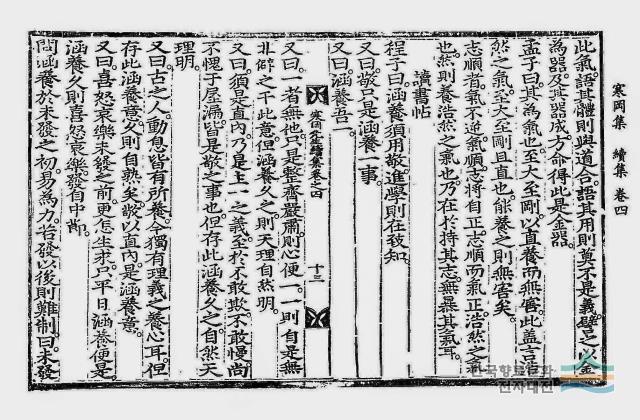 寒岡集 續集 卷四
此氣語其體則與道合語其用則莫不是義譬之以金
為器及其器成方命得此是金器
孟子曰其為氣也至大至剛以直養而無害此盖言浩
然之氣至大至剛且直也能養之則無害矣
志順者氣不逆氣順志將自正志順而氣正浩然之氣
也然則養浩然之氣也乃在於持其志無暴其氣耳
讀書帖
程子曰涵養須用敬進學則在致知
又曰敬只是涵養一事
又曰涵養吾一
寒岡先生續集卷之四 十三
又曰一者無他只是整齊嚴肅則心便一一則自是無
非僻之干此意但涵養久之則天理自然明
又曰須是直內乃是主一之義至於不敢欺不敢慢尚
不愧于屋漏皆是敬之事也但存此涵養久之自然天
理明
又曰古之人動息皆有所養今獨有理義之養心耳但
存此涵養意久則自熟矣敬以直內是涵養意
又曰喜怒哀樂未發之前更怎生求只平日涵養便是
涵養久則喜怒哀樂發自中節
問涵養於未發之初易為力若發以後則難制曰未發
한국향토문화
전자대전